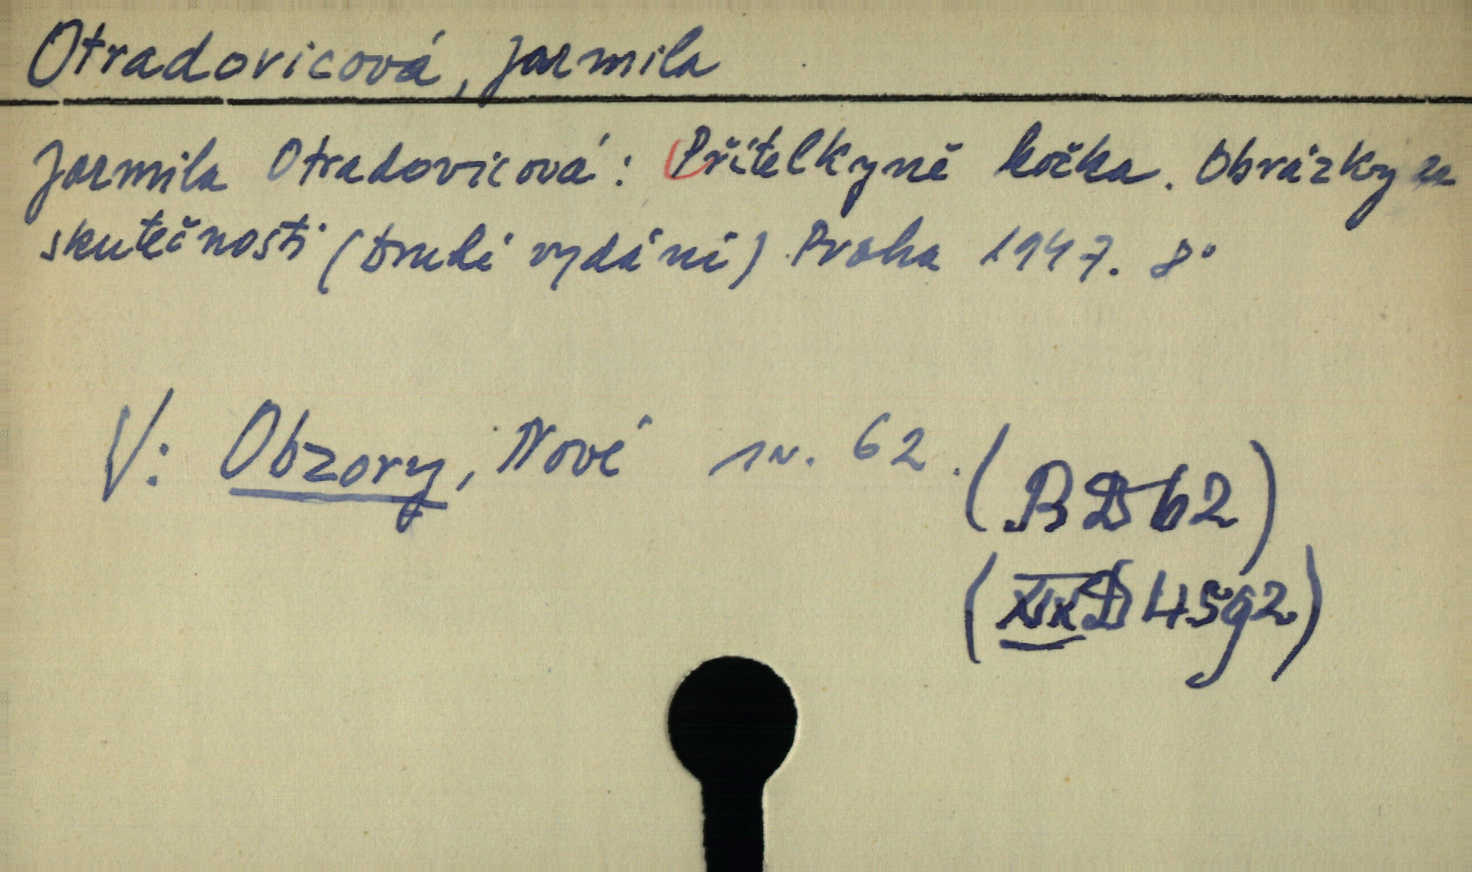 Otradovicová, Jarmila
Jarmila Otradovicová: Přítelkyně kočka. Obrázky ze
skutečnosti (druhé vydání) Praha 1947. 8°
V: Obzory, Nové sv. 62.
(BD 62)
(XIX D 4592)